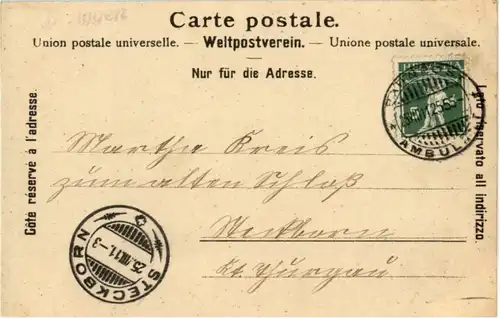 Carte postale.
Union postale universelle. — Weltpostverein. — Unione postale universale.
Nur für die Adresse.
Côté réservé à l'adresse.
Lato riservato all indirizzo.
HELVETIA
AMBUL.
Martha Kreis
zum alten Schloß
Steckborn
Kt. Thurgau
STECKBORN
25.VIII.11.-3